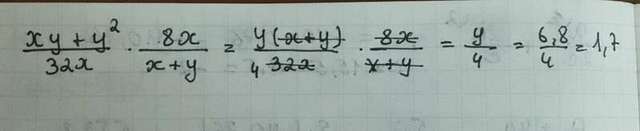 (xy + y²)/(32x) · (8x)/(x + y) = (y(x+y))/(4 32x) · (8x)/(x+y) = y/4 = 6,8/4 = 1,7